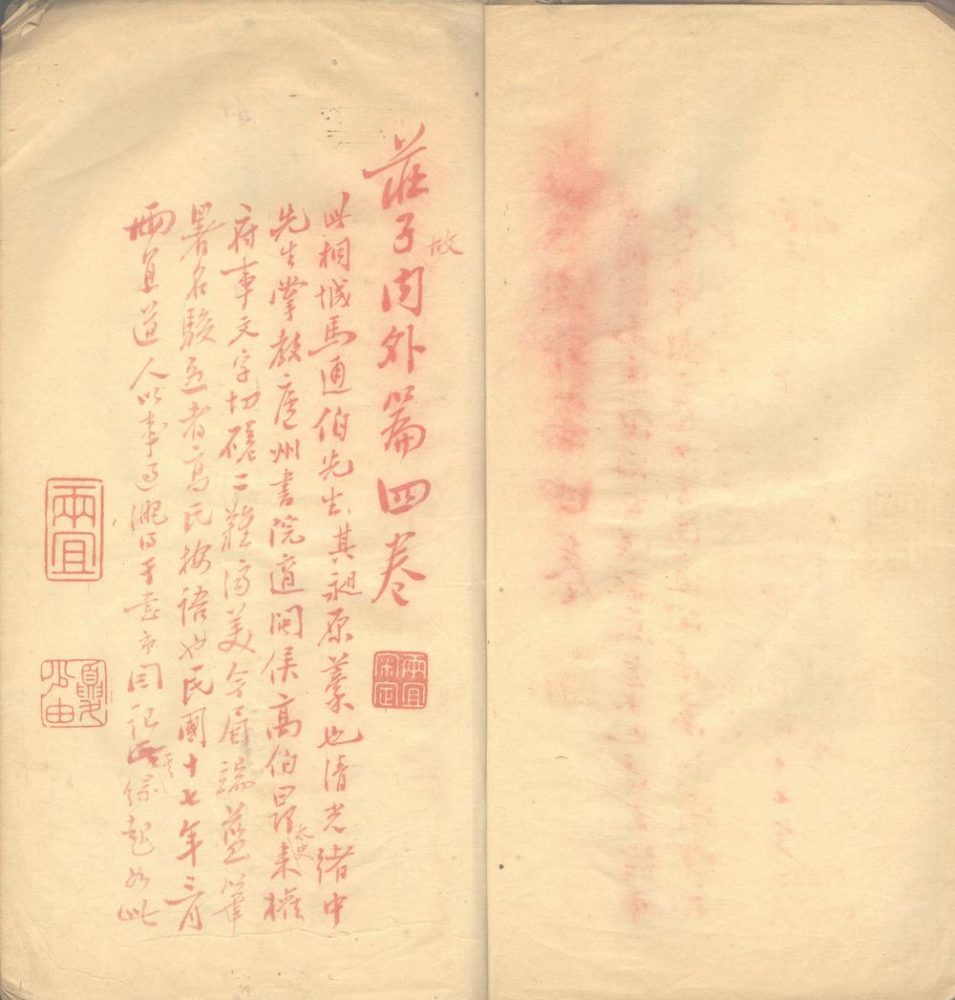 莊子內外篇四卷
故
此桐城馬通伯先生其昶原藁也清光緒中
先生掌教廬州書院適閩侯高伯㠯太史來權
府事文字切磋二難濟美今眉端藍筆
署名駿烈者高氏按語也民國十七年三月
兩宜道人以事過滬得于書市因記其緣起如此
兩宜
夏